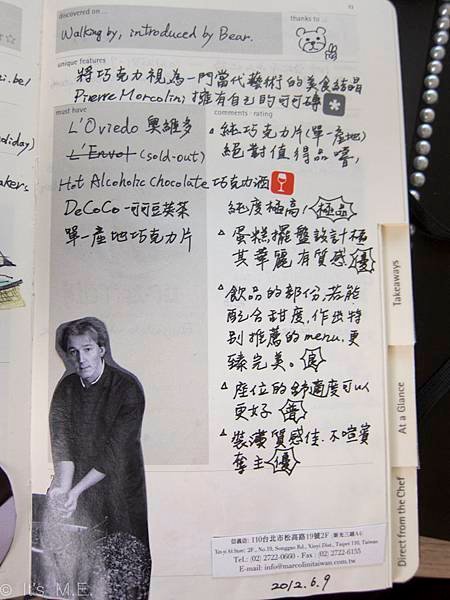 discovered on...
Walking by, introduced by Bear.
thanks to ...
13
unique features
將巧克力視為一門當代藝術的美食結晶
Pierre Marcolini 擁有自己的可可磚
must have
L'Oviedo 奧維多
L'Envol (sold-out)
Hot Alcoholic Chocolate 巧克力酒
DeCoCo 可可豆莢茶
單一產地巧克力片
comments · rating
△ 純巧克力片(單一產地)
絕對值得品嚐,
純度極高! 極品
△ 蛋糕擺盤設計極
其華麗 有質感 優
△ 飲品的部份,若能
配合甜度,作出特
別推薦的menu,更
臻完美。良
△ 座位的舒適度可以
更好 普
△ 裝潢質感佳,不喧賓
奪主 優
Takeaways
At a Glance
Direct from the Chef
信義店: 110台北市松高路19號2F (新光三越A4)
Xin-yi A4 Store: 2F., No.19, Songgao Rd., Xinyi Dist., Taipei 110, Taiwan
Tel.: (02) 2722-0660 · Fax : (02) 2722-6155
E-mail: info@marcolinitaiwan.com.tw
2012.6.9
ei.be/
oliday)
akers
© It's M.E.